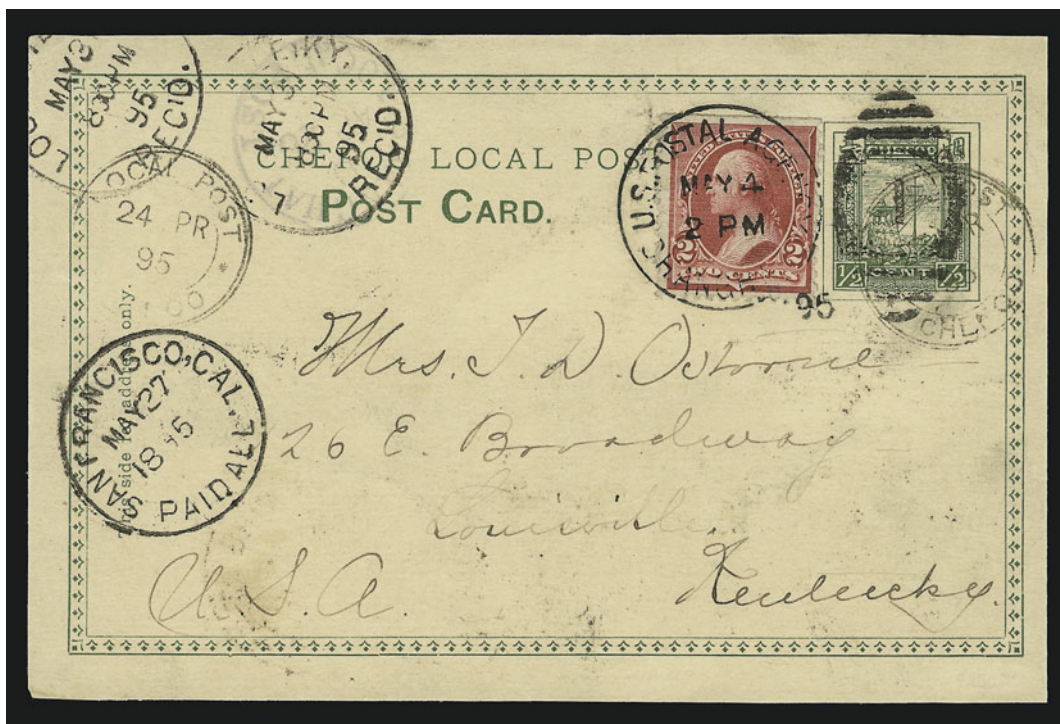 MAY 3
8 30 PM
95
REC'D.
KY.
MAY 3
8 30 PM
95
REC'D.
7
CHEFOO LOCAL POST
POST CARD.
LOCAL POST
24 PR
95
U.S. POSTAL AGENCY
MAY 4
2 PM
SHANGHAI
95
UNITED STATES
2 2
TWO CENTS
CHEFOO
1/2 CENT 1/2
POST
CHEFOO
This side for address only.
SAN FRANCISCO, CAL.
MAY 27
1895
PAID ALL
Mrs. T. D. Osborne
26 E. Broadway
Louisville
Kentucky.
U.S.A.